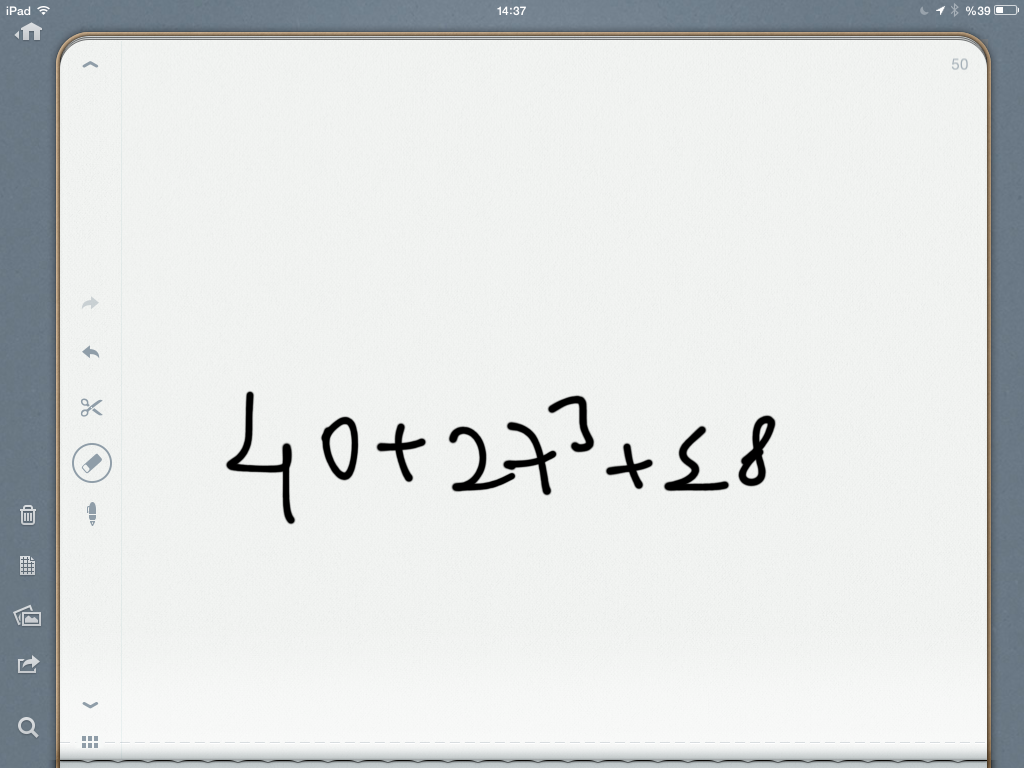 iPad 14:37 %39
50
40+27³+≤8